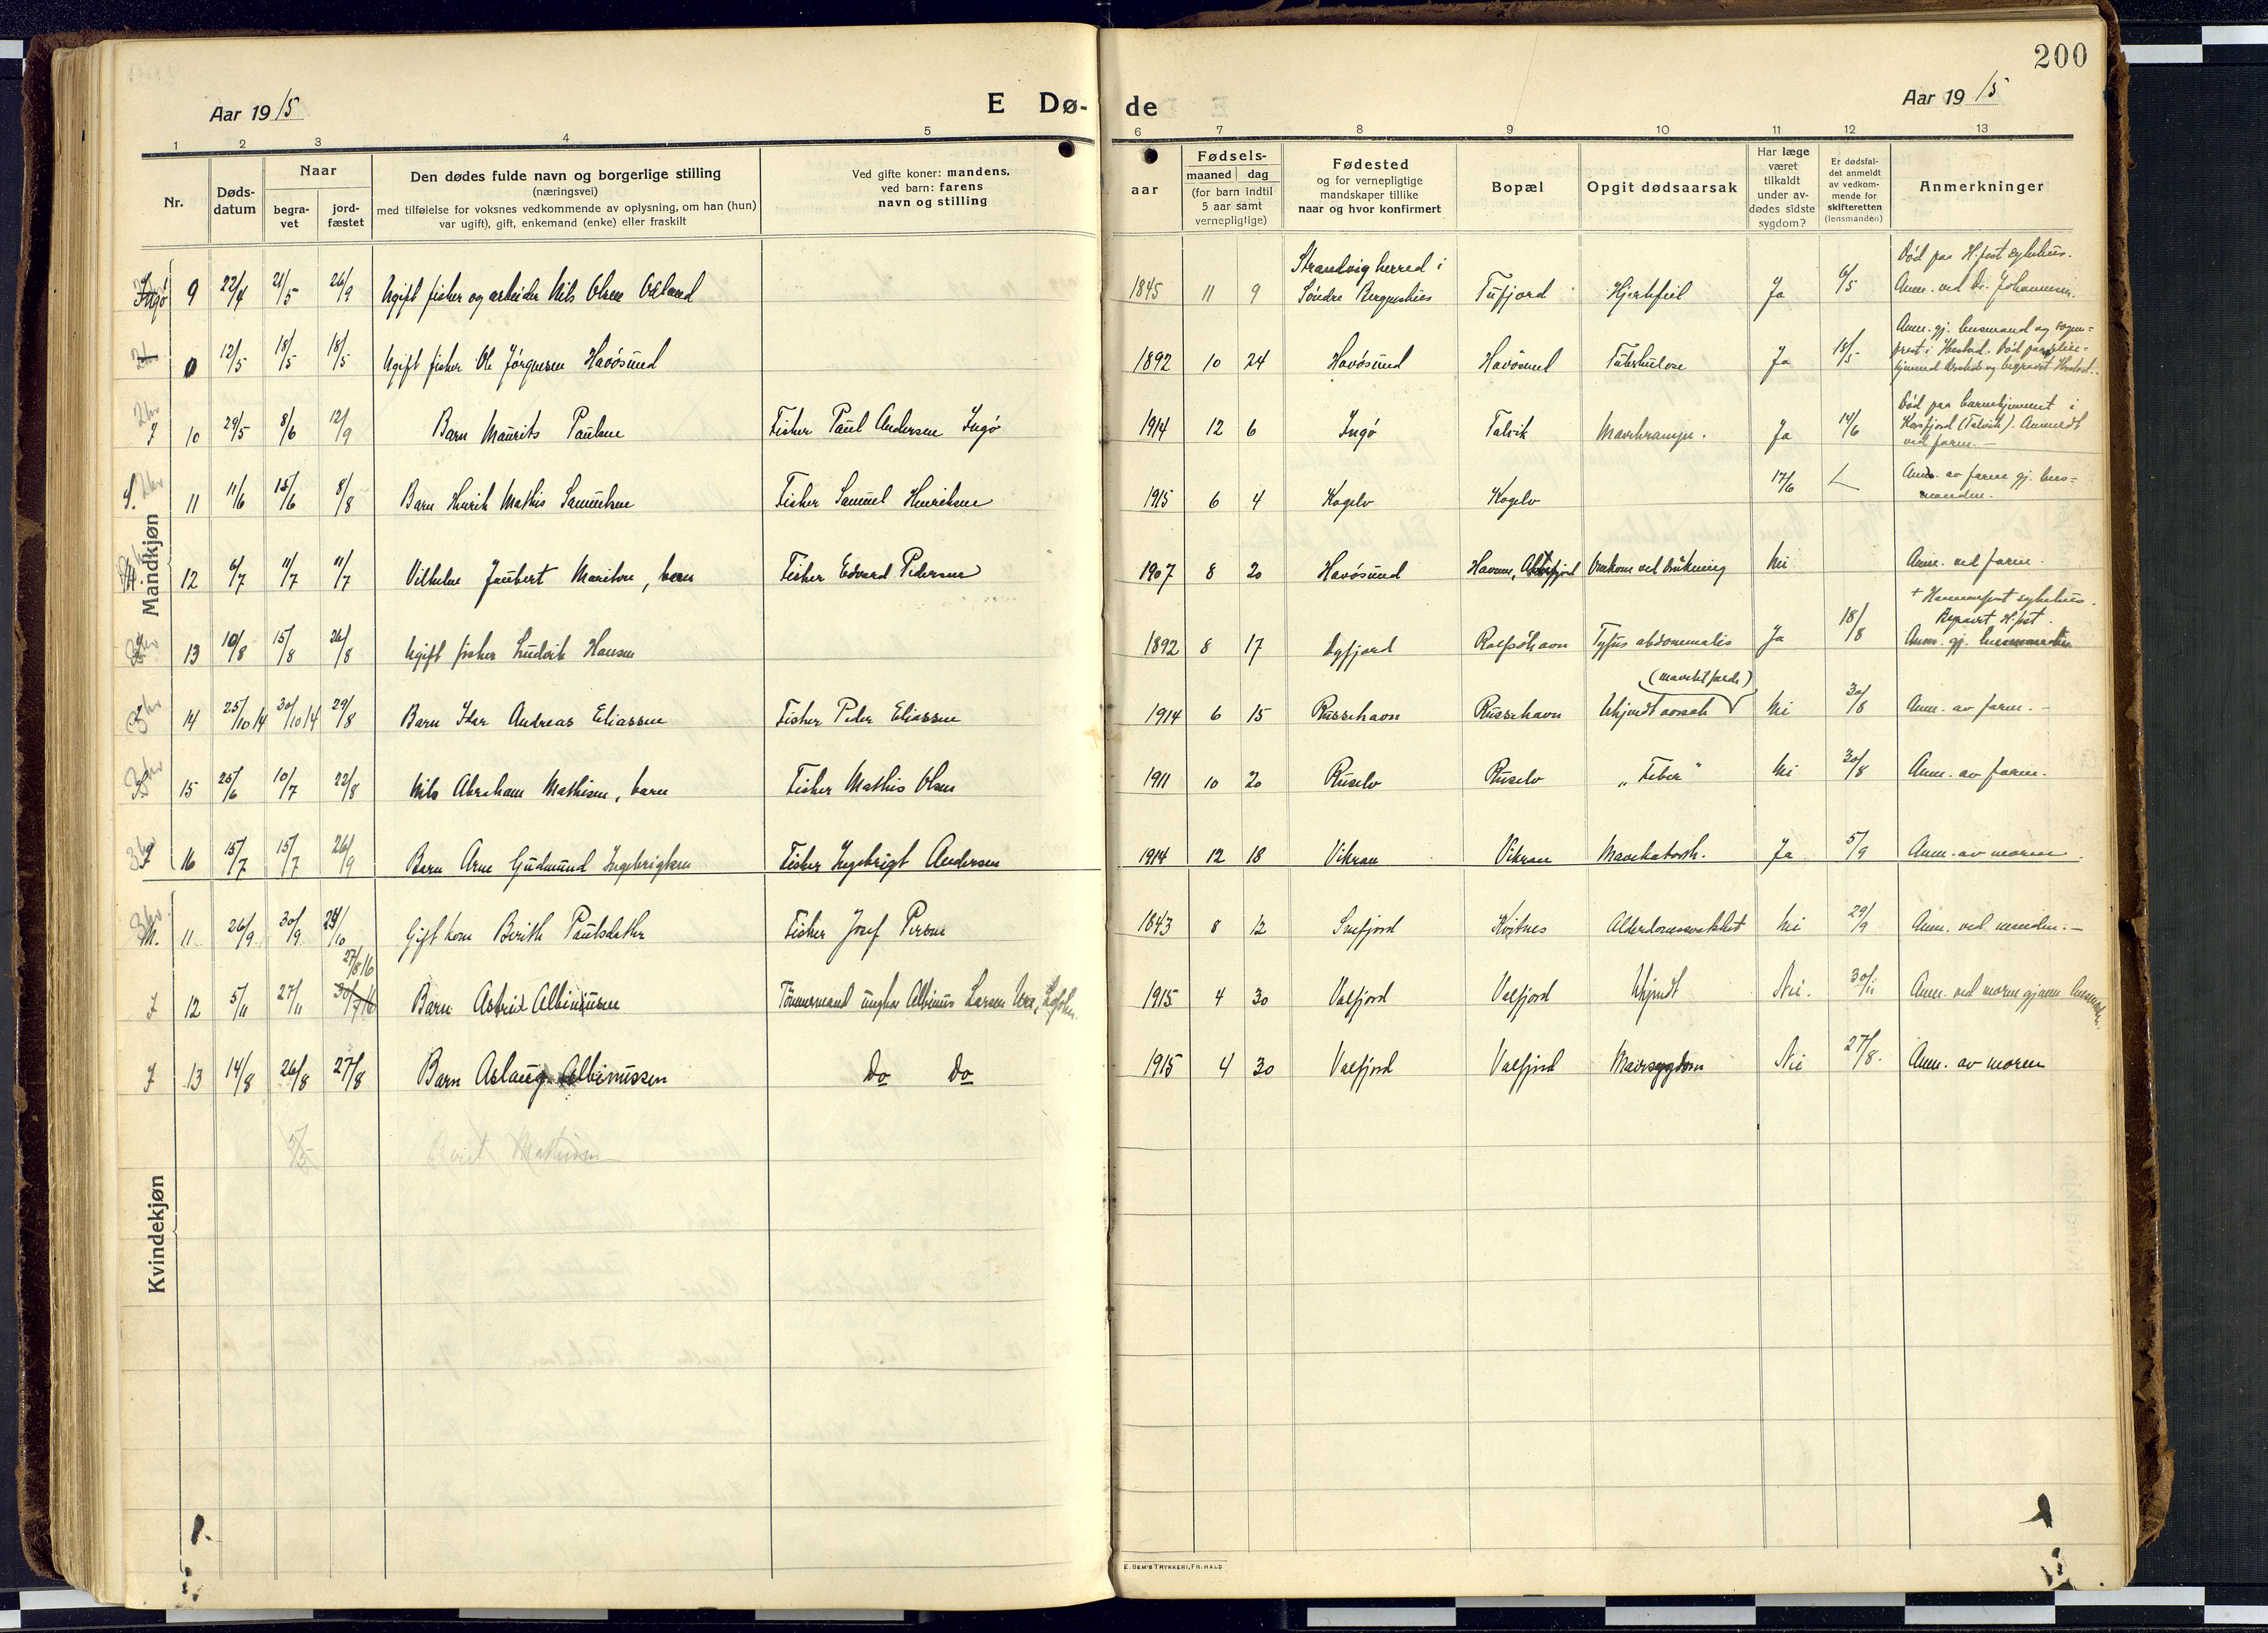 200
Aar 1915 E Dø- de Aar 1915
1 2 3 4 5 6 7 8 9 10 11 12 13
Nr.
Døds-
datum
Naar
begra-
vet
jord-
fæstet
Den dødes fulde navn og borgerlige stilling
(næringsvei)
med tilføielse for voksnes vedkommende av oplysning, om han (hun)
var ugift), gift, enkemand (enke) eller fraskilt
Ved gifte koner: mandens,
ved barn: farens
navn og stilling
aar
Fødsels-
maaned dag
(for barn indtil
5 aar samt
vernepligtige)
Fødested
og for vernepligtige
mandskaper tillike
naar og hvor konfirmert
Bopæl
Opgit dødsaarsak
Har læge
været
tilkaldt
under av-
dødes sidste
sygdom?
Er dødsfal-
det anmeldt
av vedkom-
mende for
skifteretten
(lensmanden)
Anmerkninger
Mandkjøn
Strandvig herred i Død paa H.fest sykehus.
Ingø 9 22/4 21/5 26/9 Ugift fisker og arbeider Nils Olsen 1845 11 9 Søndre Bergenshus Tufjord Hjertefeil Ja 6/5 Anm. ved Dr. Johannesen.
0 12/5 18/5 18/5 Ugift fisker Ole Jørgensen Havøsund 1892 10 24 Havøsund Havøsund Tuberkulose Ja 18/5
Død paa barnehjemmet i
I 10 29/5 8/6 12/9 Barn Maurits Paulsen Fisker Paul Andersen Ingø 1914 12 6 Ingø Talvik Mavekrampe. Ja 14/6 Korsfjord (Talvik). Anmeldt
ved faren. —
11 11/6 15/6 8/8 Barn Henrik Mathis Samuelsen Fisker Samuel Henriksen 1915 6 4 Kogelv Kogelv 17/6 Anm. av faren gj. lens-
manden.
12 6/7 11/7 11/7 Vilhelm Jaubert Mariton, barn Fisker Edvard Pedersen 1907 8 20 Havøsund Omkom ved drukning Nei Anm. ved faren.
+ Hammerfest sykehus.
Begravet H.fest.
13 10/8 15/8 26/8 Ugift fisker Ludvik Hansen 1892 8 17 Dyfjord Rolfsøhavn Tyfus abdominalis Ja 18/8 Anm. gj. lensmanden
14 25/10 14 30/10 14 29/8 Barn Ider Andreas Eliassen Fisker Peder Eliassen 1914 6 15 Russehavn Russehavn Ukjendt aarsak Nei 30/8 Anm. av faren. —
15 25/6 10/7 22/8 Nils Abraham Mathisen, barn Fisker Mathis Olsen 1911 10 20 Ruselv Ruselv „Feber" Nei 30/8 Anm. av faren.
I 16 15/7 15/7 26/9 Barn Arne Gudmund Ingebrigtsen Fisker Ingebrigt Andersen 1914 12 18 Vikran Vikran Mavekatarrh. Ja 5/9 Anm. av moren.
Kvindekjøn
M. 11 26/9 30/9 Gift kone Berith Paulsdatter Fisker Josef Persen 1843 8 12 Snefjord Kvitnes Alderdomssvakhet Nei 29/9 Anm. ved manden. —
27/8 16
I 12 5/11 27/11 30/7 16 Barn Astrid Albinussen Tømmermand ungkar Albinus Larsen 1915 4 30 Valfjord Valfjord Ukjendt Nei. 30/11 Anm. ved moren gjennem lensmanden.
I 13 14/8 26/8 27/8 Barn Aslaug Albinussen Do Do 1915 4 30 Valfjord Valfjord Mavesygdom Nei 27/8. Anm. av moren
5/5 Berit Mathisen
E. SEM'S TRYKKERI, FR.HALD